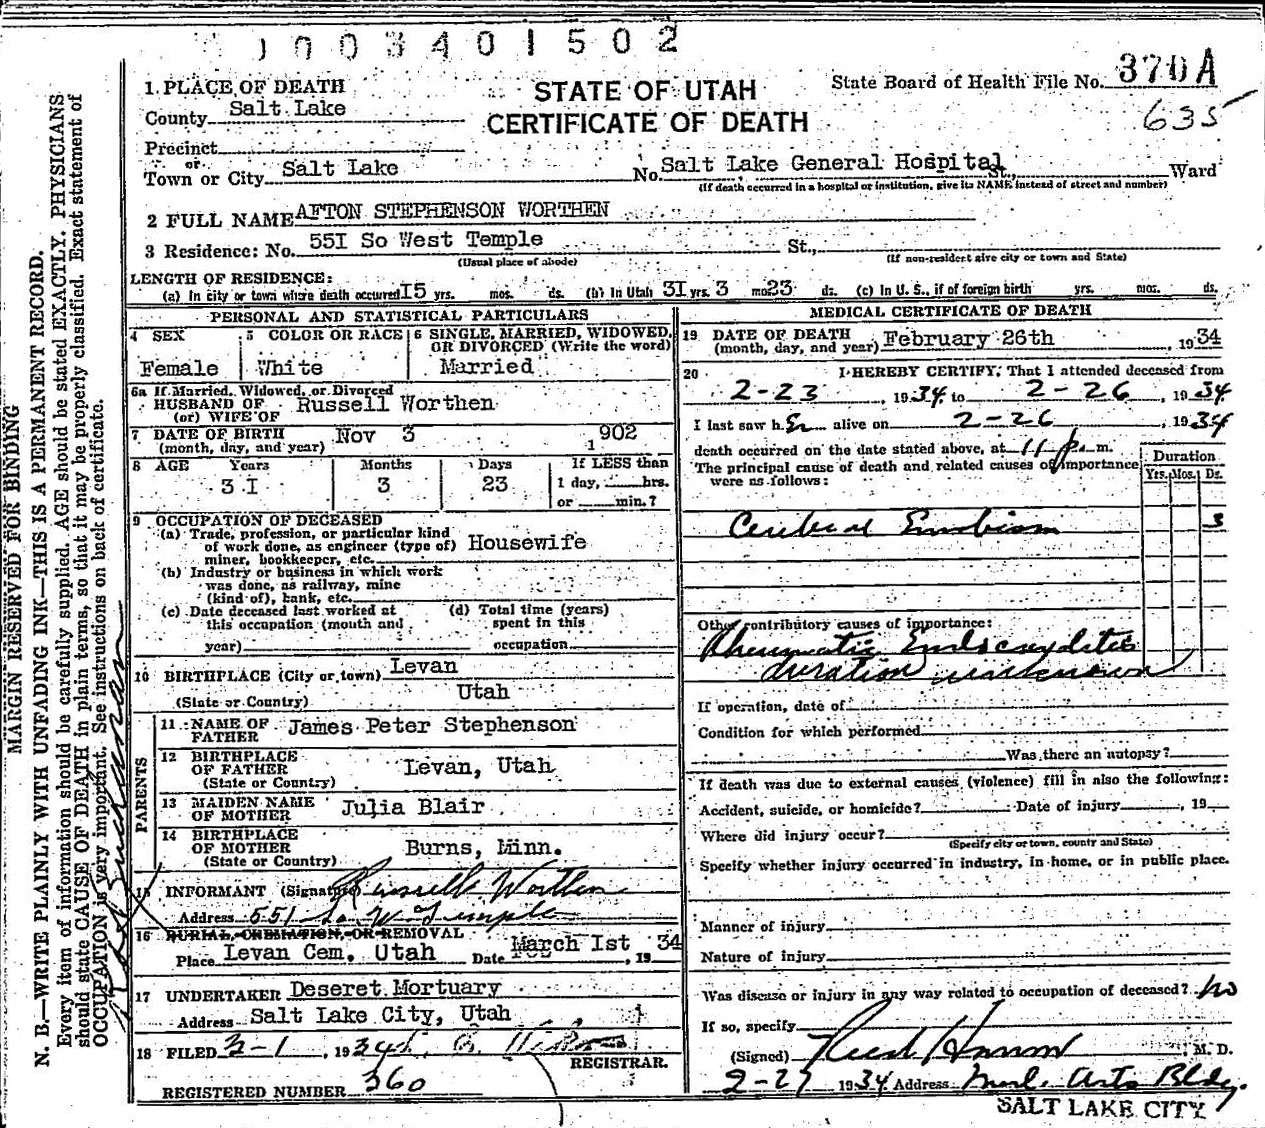 1003401502
STATE OF UTAH
CERTIFICATE OF DEATH
State Board of Health File No. 370A
635
1. PLACE OF DEATH
County Salt Lake
Precinct
or
Town or City Salt Lake
No. Salt Lake General Hospital St., Ward
(If death occurred in a hospital or institution, give its NAME instead of street and number)
2 FULL NAME AFTON STEPHENSON WORTHEN
3 Residence: No. 55I So West Temple St.,
(Usual place of abode)
(If non-resident give city or town and State)
LENGTH OF RESIDENCE:
(a) In city or town where death occurred I5 yrs. mos. ds. (b) In Utah 3I yrs. 3 mos 23 ds. (c) In U. S., if of foreign birth yrs. mos. ds.
PERSONAL AND STATISTICAL PARTICULARS
4 SEX
Female
5 COLOR OR RACE
White
6 SINGLE, MARRIED, WIDOWED, OR DIVORCED (Write the word)
Married
6a If Married, Widowed, or Divorced
HUSBAND OF
(or) WIFE OF
Russell Worthen
7 DATE OF BIRTH
(month, day, and year)
Nov 3 1902
8 AGE Years Months Days If LESS than
3I 3 23 1 day, hrs.
or min.?
9 OCCUPATION OF DECEASED
(a) Trade, profession, or particular kind
of work done, as engineer (type of)
miner, bookkeeper, etc.
Housewife
(b) Industry or business in which work
was done, as railway, mine
(kind of), bank, etc.
(c) Date deceased last worked at
this occupation (month and
year)
(d) Total time (years)
spent in this
occupation
10 BIRTHPLACE (City or town) Levan
(State or Country) Utah
PARENTS
11 NAME OF FATHER James Peter Stephenson
12 BIRTHPLACE OF FATHER
(State or Country)
Levan, Utah
13 MAIDEN NAME OF MOTHER Julia Blair
14 BIRTHPLACE OF MOTHER
(State or Country)
Burns, Minn.
15 INFORMANT (Signature) Russell Worthen
Address 551 So W Temple
16 BURIAL, CREMATION, OR REMOVAL
Place Levan Cem. Utah Date March Ist, 1934
17 UNDERTAKER Deseret Mortuary
Address Salt Lake City, Utah
18 FILED 3-1, 1934
REGISTRAR.
REGISTERED NUMBER 360
MEDICAL CERTIFICATE OF DEATH
19 DATE OF DEATH
(month, day, and year) February 26th, 1934
20 I HEREBY CERTIFY, That I attended deceased from
2-23, 1934 to 2-26, 1934
I last saw her alive on 2-26, 1934
death occurred on the date stated above, at 11 p. m.
The principal cause of death and related causes of importance
were as follows:
Duration
Yrs. Mos. Ds.
Cerebral Embolism 3
Other contributory causes of importance:
Rheumatic Endocarditis
duration unknown
If operation, date of
Condition for which performed
Was there an autopsy?
If death was due to external causes (violence) fill in also the following:
Accident, suicide, or homicide? Date of injury , 19
Where did injury occur?
(Specify city or town, county and State)
Specify whether injury occurred in industry, in home, or in public place.
Manner of injury
Nature of injury
Was disease or injury in any way related to occupation of deceased? no
If so, specify
(Signed) M. D.
2-27 1934 Address Med. Arts Bldg.
SALT LAKE CITY
MARGIN RESERVED FOR BINDING
N. B.—WRITE PLAINLY WITH UNFADING INK—THIS IS A PERMANENT RECORD.
Every item of information should be carefully supplied. AGE should be stated EXACTLY. PHYSICIANS
should state CAUSE OF DEATH in plain terms, so that it may be properly classified. Exact statement of
OCCUPATION is very important. See instructions on back of certificate.